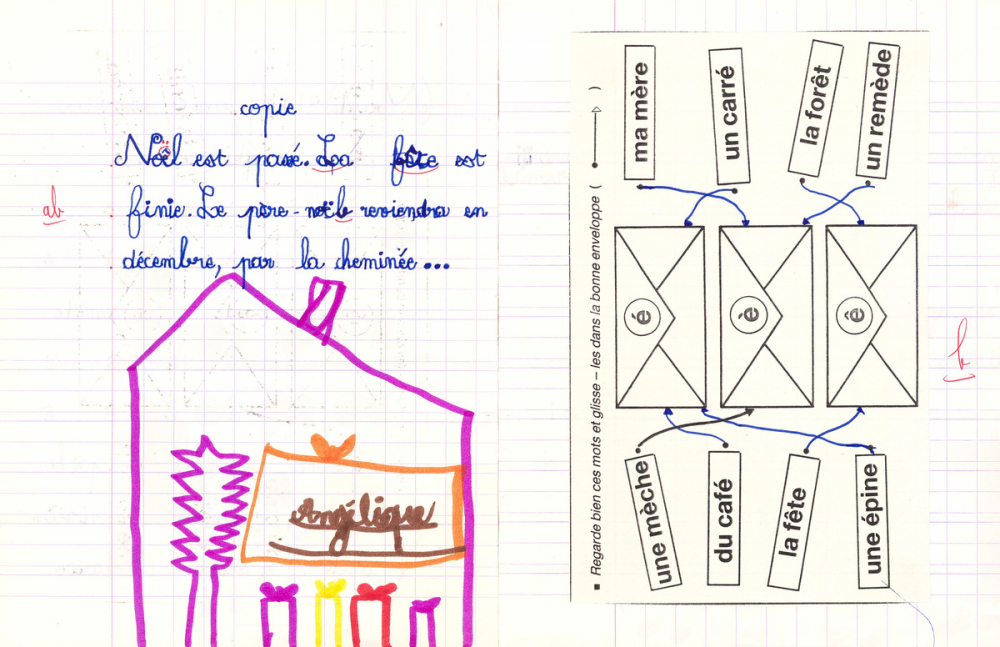 copie
Noël est passé. La fête est
finie. Le père-noël reviendra en
décembre, par la cheminée...
ab
Angélique
■ Regarde bien ces mots et glisse – les dans la bonne enveloppe ( •—→ )
ma mère
un carré
la forêt
un remède
é
è
ê
une mèche
du café
la fête
une épine